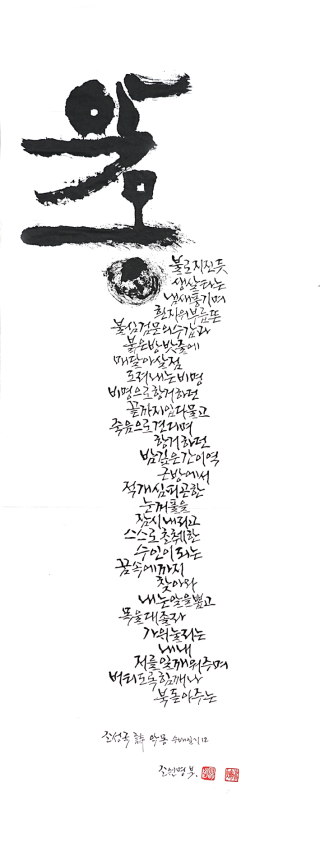 악몽
불로지진듯
생살타는
냄새풍기며
흰자위부릅뜬
불심검문의수갑과
붉은방빛줄에
매달아살점
도려내는비명
비명으로항거하던
끝까지입다물고
죽음으로견디며
항거하던
밤깊은간이역
근방에서
적개심피곤한
눈꺼풀을
잠시내리고
스스로초췌한
수인이되는
꿈속에까지
찾아와
내눈알을뽑고
목을대줄라
가위눌리는
내내
저를일깨워주며
버티도록함께나
북돋아주는
조성국 詩 악몽 수배일기 12